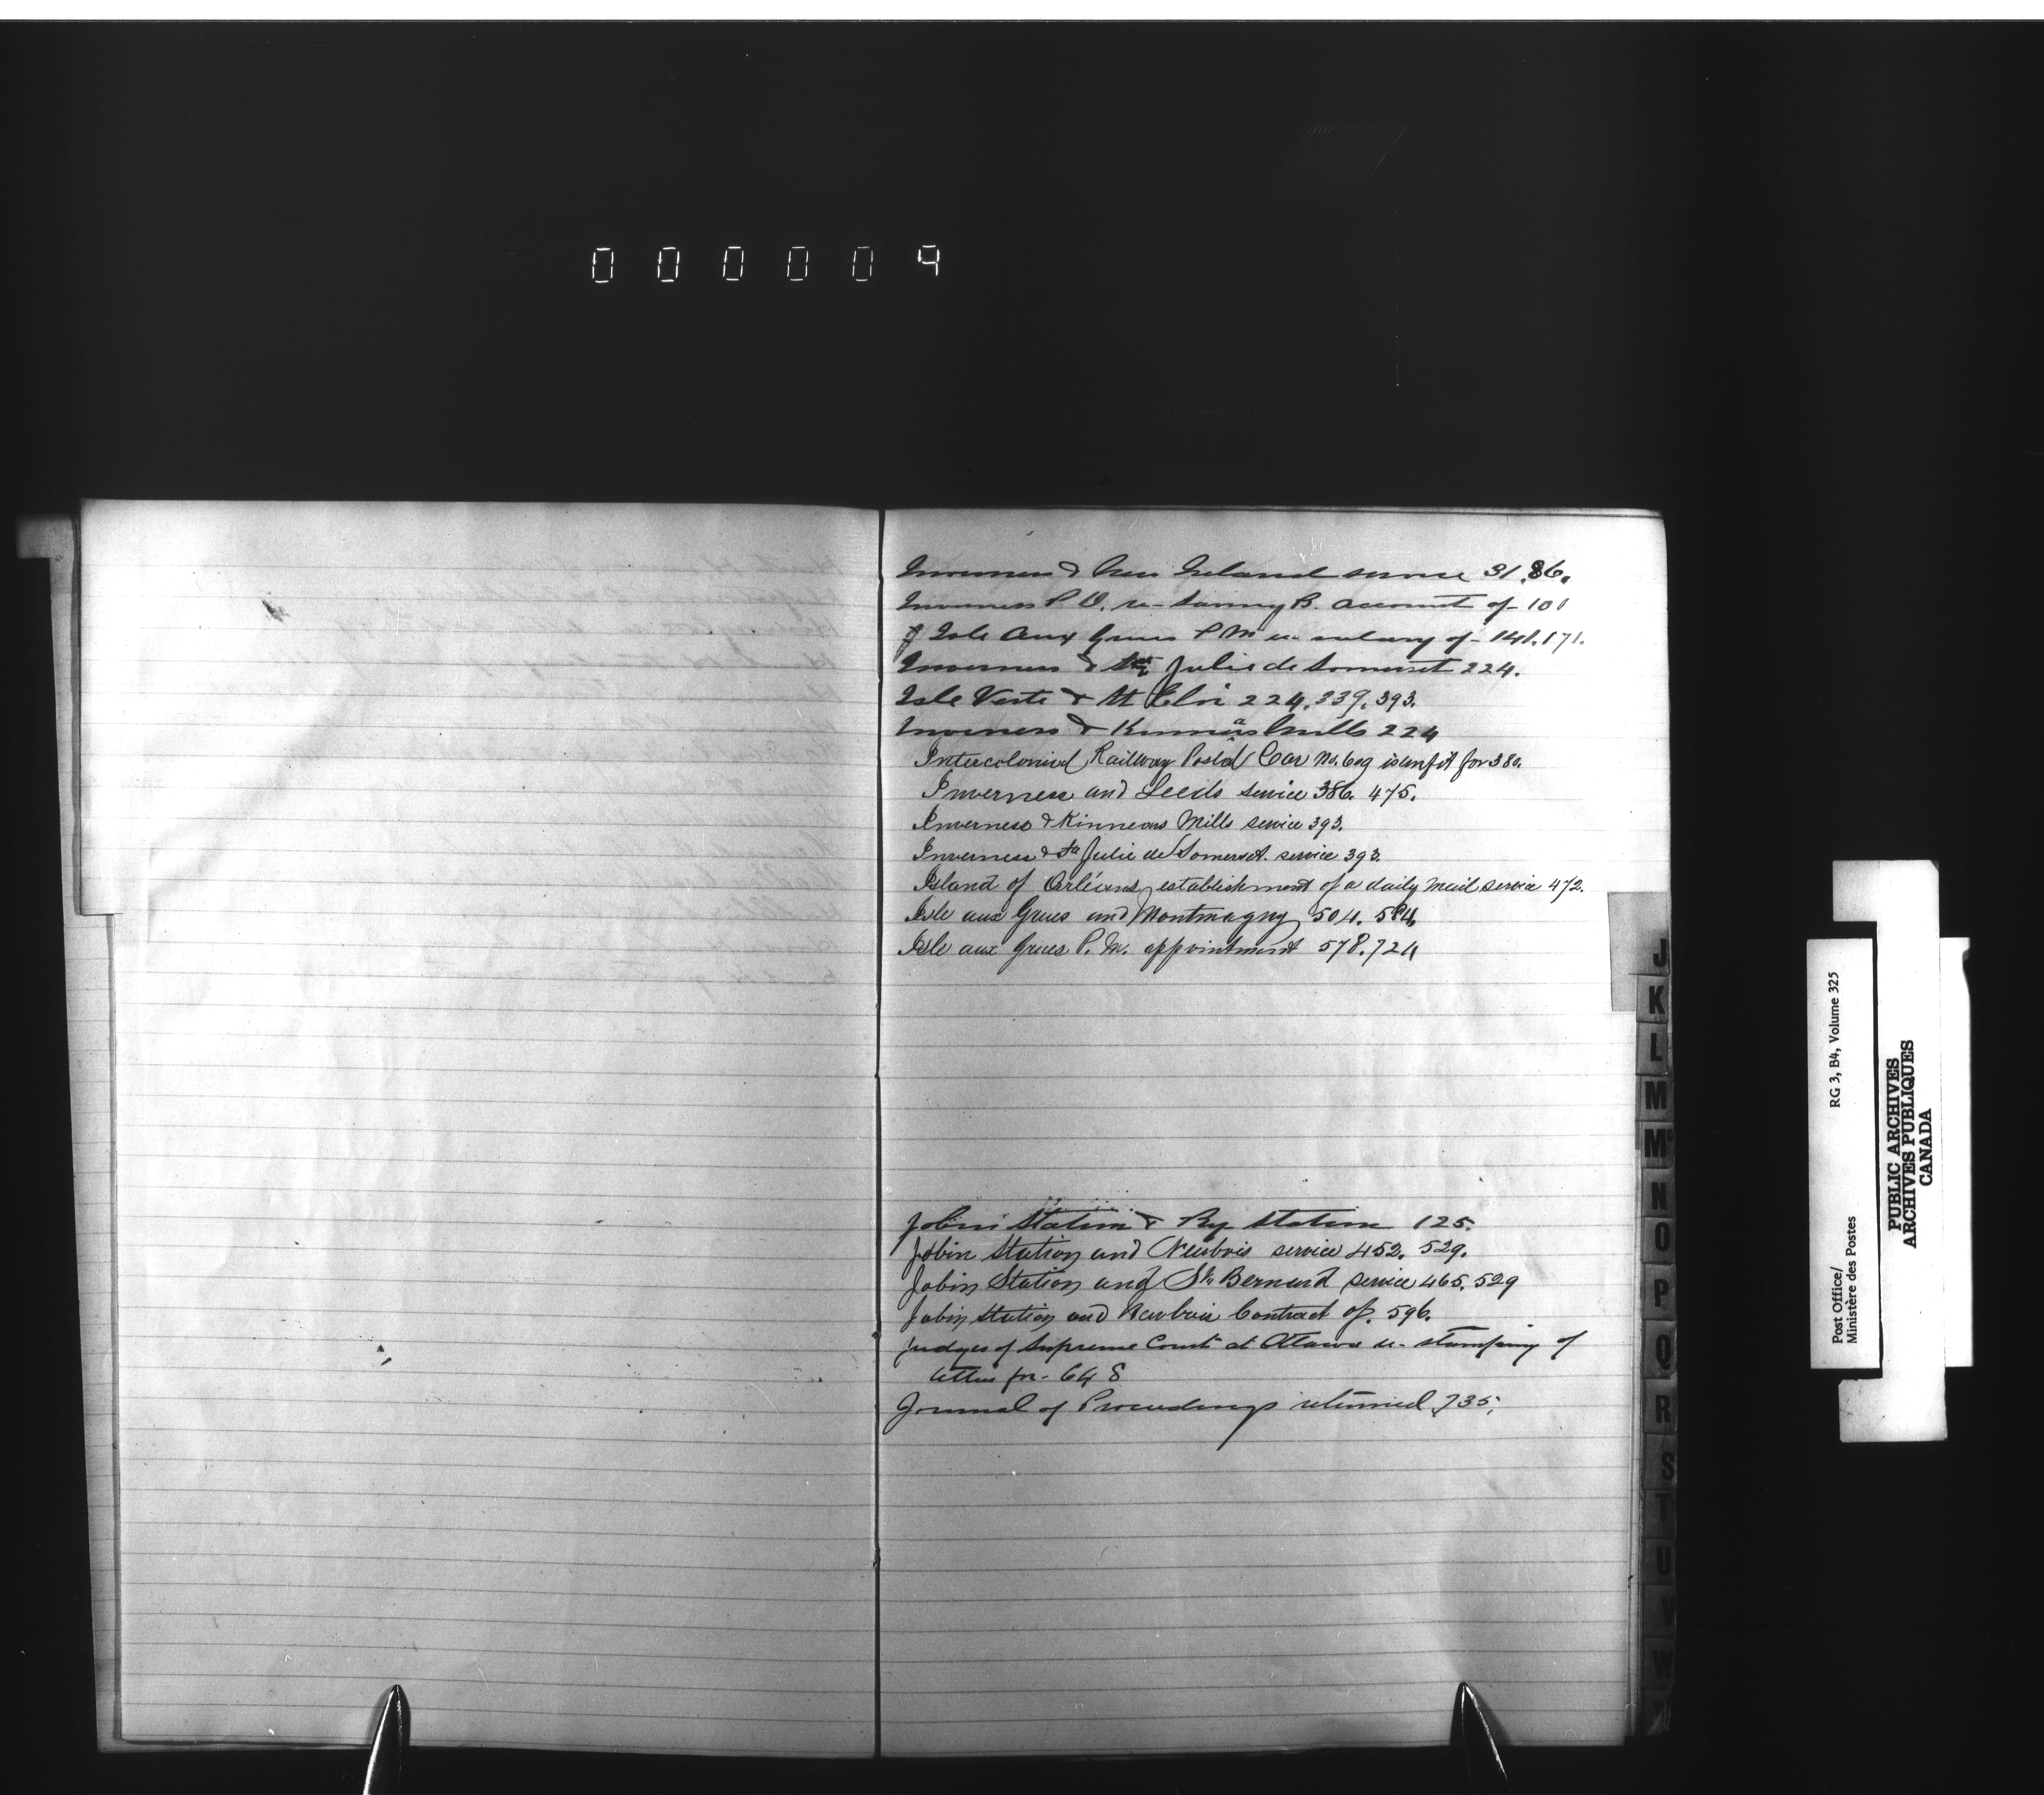 000009
Inverness & New Ireland service 31.86.
Inverness P.O. re- Saving B. account of- 101
Isle aux Grues P M re- salary of- 141.171.
Inverness & Ste Julie de Somerset 224.
Isle Verte & St Eloi 224.339.393.
Inverness & Kinnears Mills 224
Intercolonial Railway Postal Car No. 609 is unfit for 380.
Inverness and Leeds service 386. 475.
Inverness & Kinnears Mills service 393.
Inverness & Ste Julie de Somerset. service 393.
Island of Orléans, establishment of a daily mail service 472.
Isle aux Grues and Montmagny 504. 584
Isle aux Grues P. M. appointment 578.724
Jobin Station & Ry Station 125.
Jobin Station and Neubois service 452. 529.
Jobin Station and St. Bernard service 465. 529
Jobin Station and Neubois Contract of. 596.
Judges of Supreme Court at Ottawa re- stamping of
letters for- 648
Journal of Proceedings returned 735.
J
K
L
M
Mc
N
O
P
Q
R
S
T
U
V
W
Post Office/
Ministère des Postes
RG 3, B4, Volume 325
PUBLIC ARCHIVES
ARCHIVES PUBLIQUES
CANADA